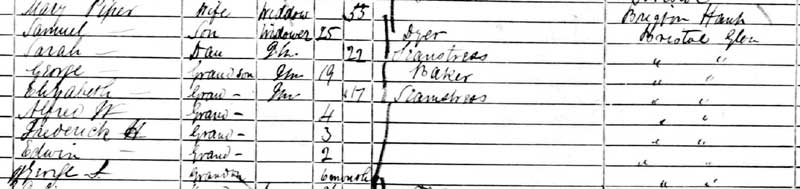 Mary Piper Wife Widdow 55 Brigton Hank
Samuel — Son Widower 25 Dyer Bristol Glou
Sarah — Dau Un 22 Seamstress " "
George — Grandson Un 19 Baker " "
Elizabeth — Grand — Un 17 Seamstress " "
Alfred W Grand — 4 " "
Frederick H Grand — 3 " "
Edwin — Grand — 2 " "
George S. Grandson 6 month " "